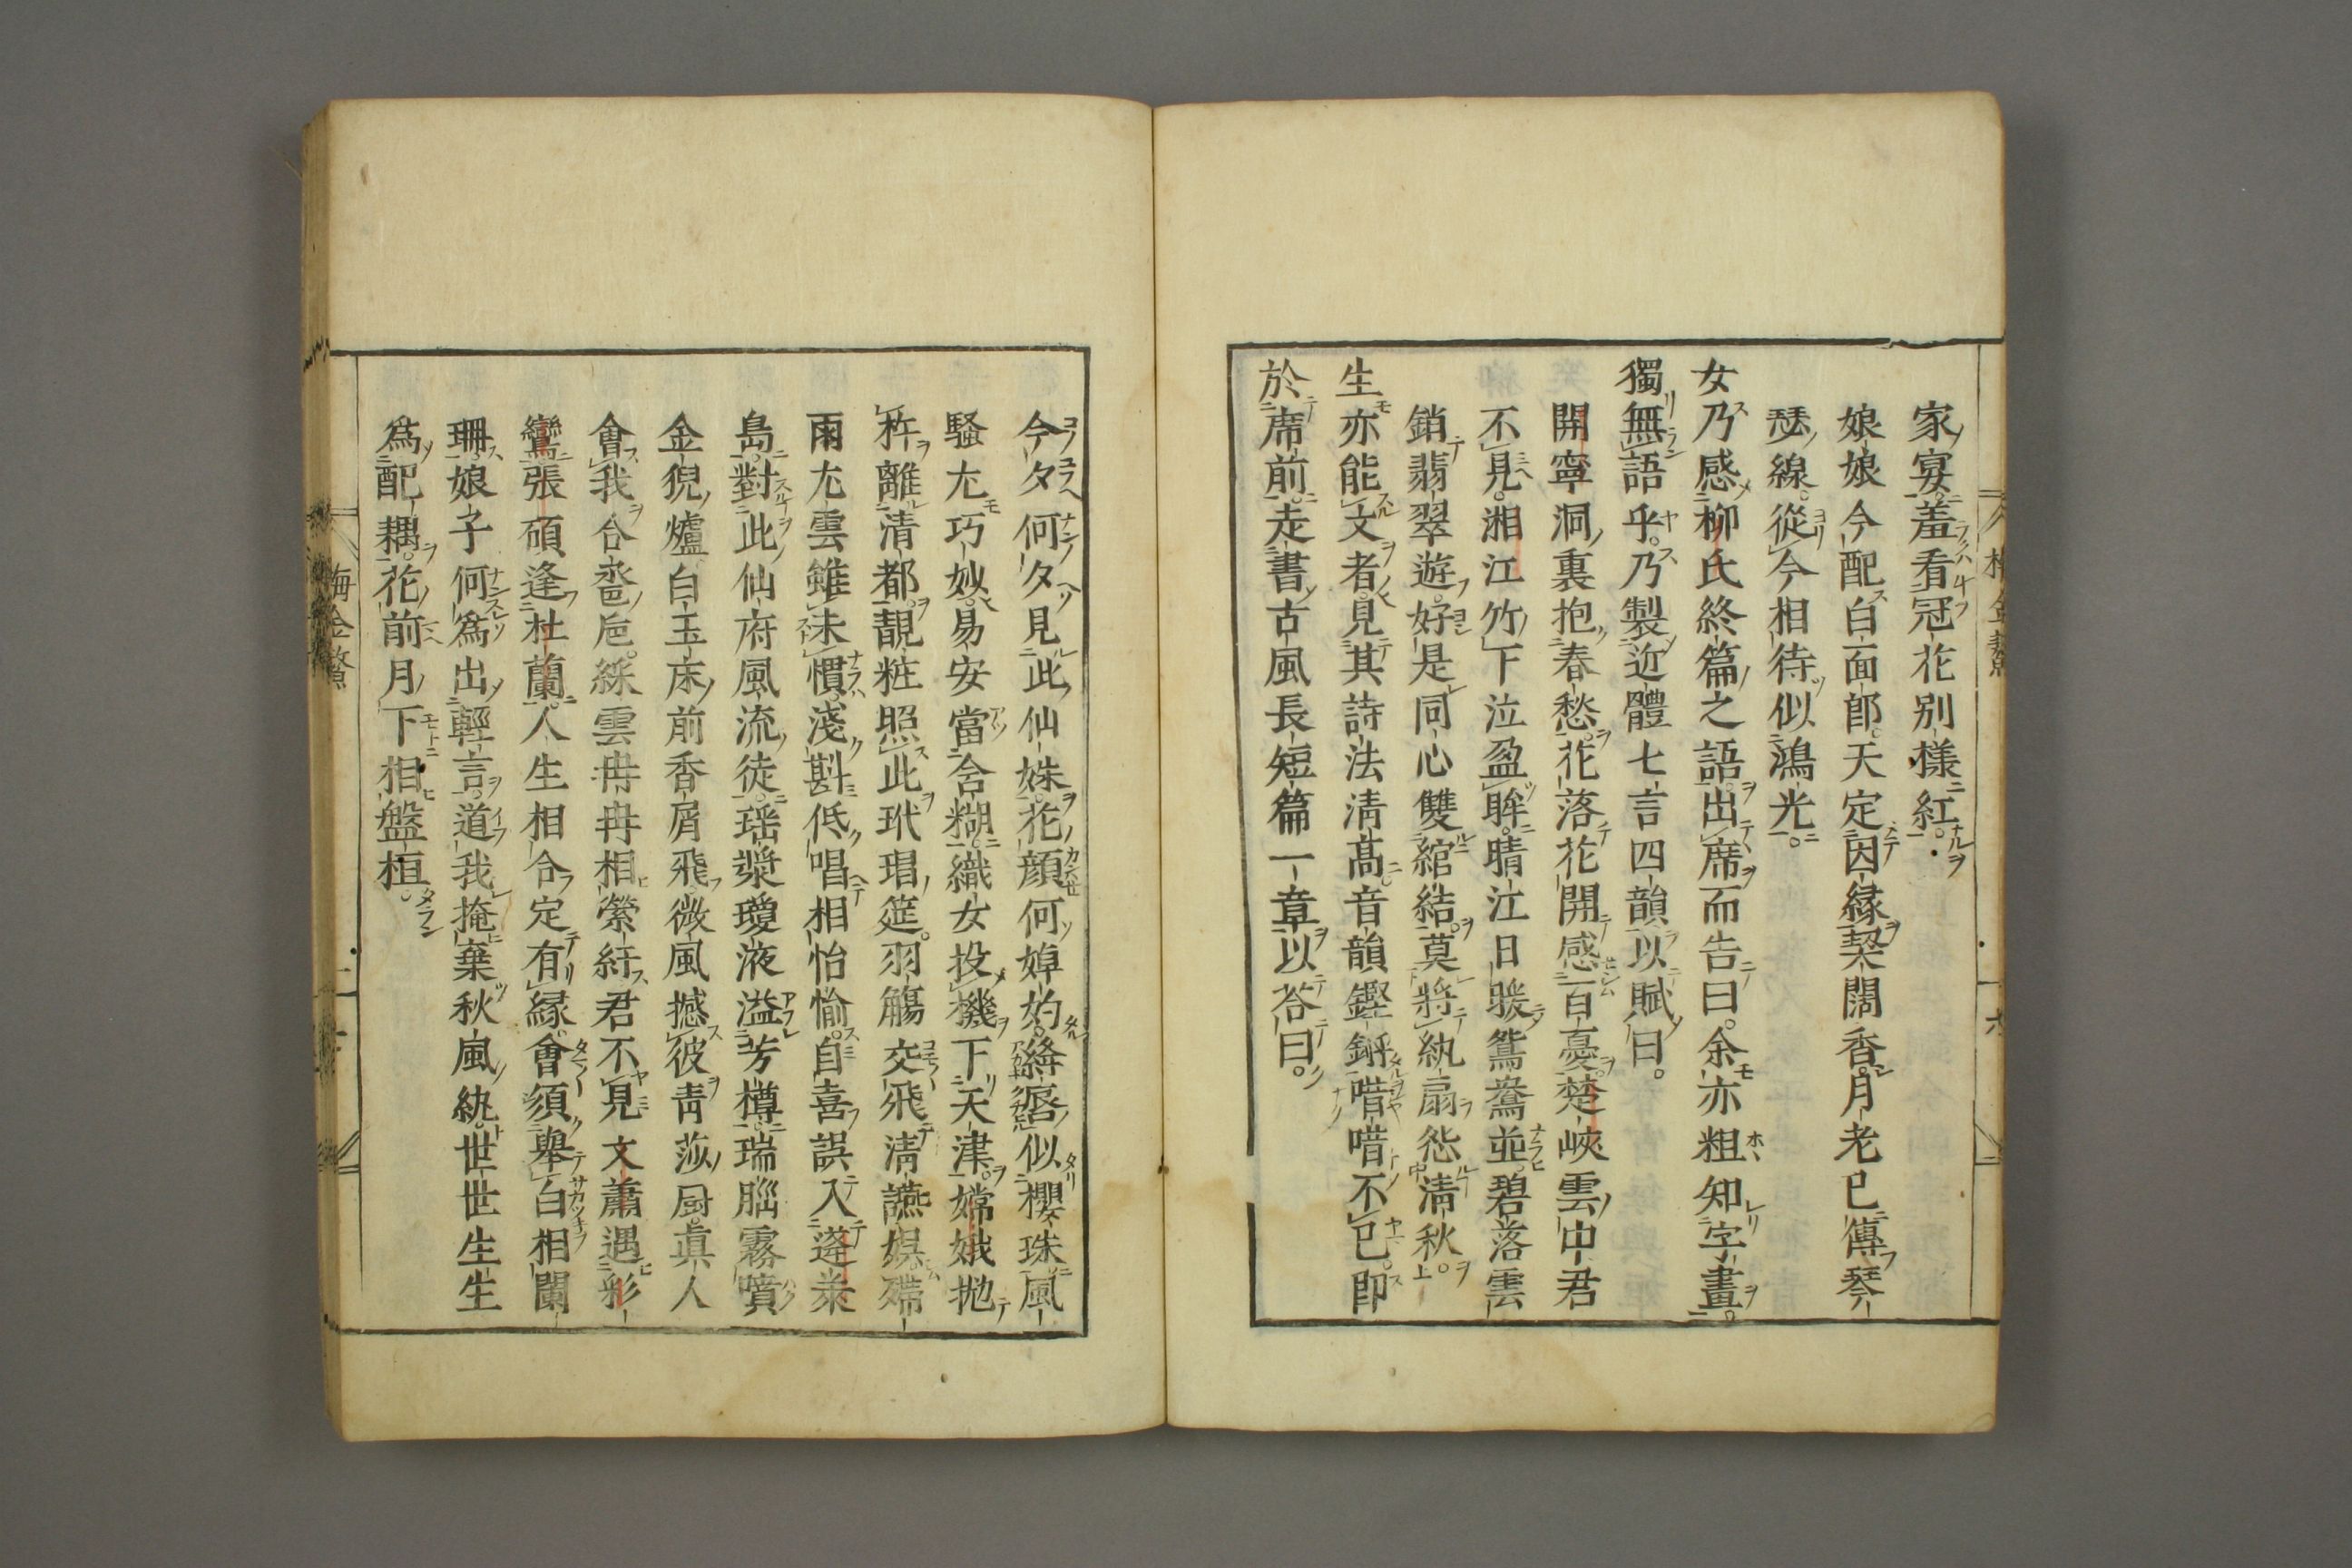 家宴羞看冠花別樣紅
娘娘今配白面郎天定因緣契闊香月老已傳琴
瑟線從今相待似鴻光
女乃感柳氏終篇之語出席而告曰余亦粗知字畫
獨無語乎乃製近體七言四韻以賦曰
開寧洞裏抱春愁花落花開感百憂楚峽雲中君
不見湘江竹下泣盈眸晴江日暖鴛鴦並碧落雲
銷翡翠遊好是同心雙綰結莫將紈扇怨淸秋
生亦能文者見其詩法淸髙音韻鏗鏘唶唶不已卽
於席前走書古風長短篇一章以荅曰
今夕何夕見此仙姝花顔何婥妁絳唇似櫻珠風
騷尤巧妙易安當含糊織女投機下天津嫦娥抛
杵離淸都靚粧照此玳瑁筵羽觴交飛淸讌娯殢
雨尤雲雖未慣淺斟低唱相怡愉自喜誤入蓬萊
島對此仙府風流徒瑶漿瓊液溢芳樽瑞腦霧噴
金猊爐白玉床前香屑飛微風撼彼靑莎厨眞人
會我合巹巵綵雲冉冉相縈紆君不見文蕭遇彩
鸞張碩逢杜蘭人生相合定有緣會須舉白相闌
珊娘子何爲出輕言道我掩棄秋風紈世世生生
爲配耦花前月下相盤桓
梅金鰲